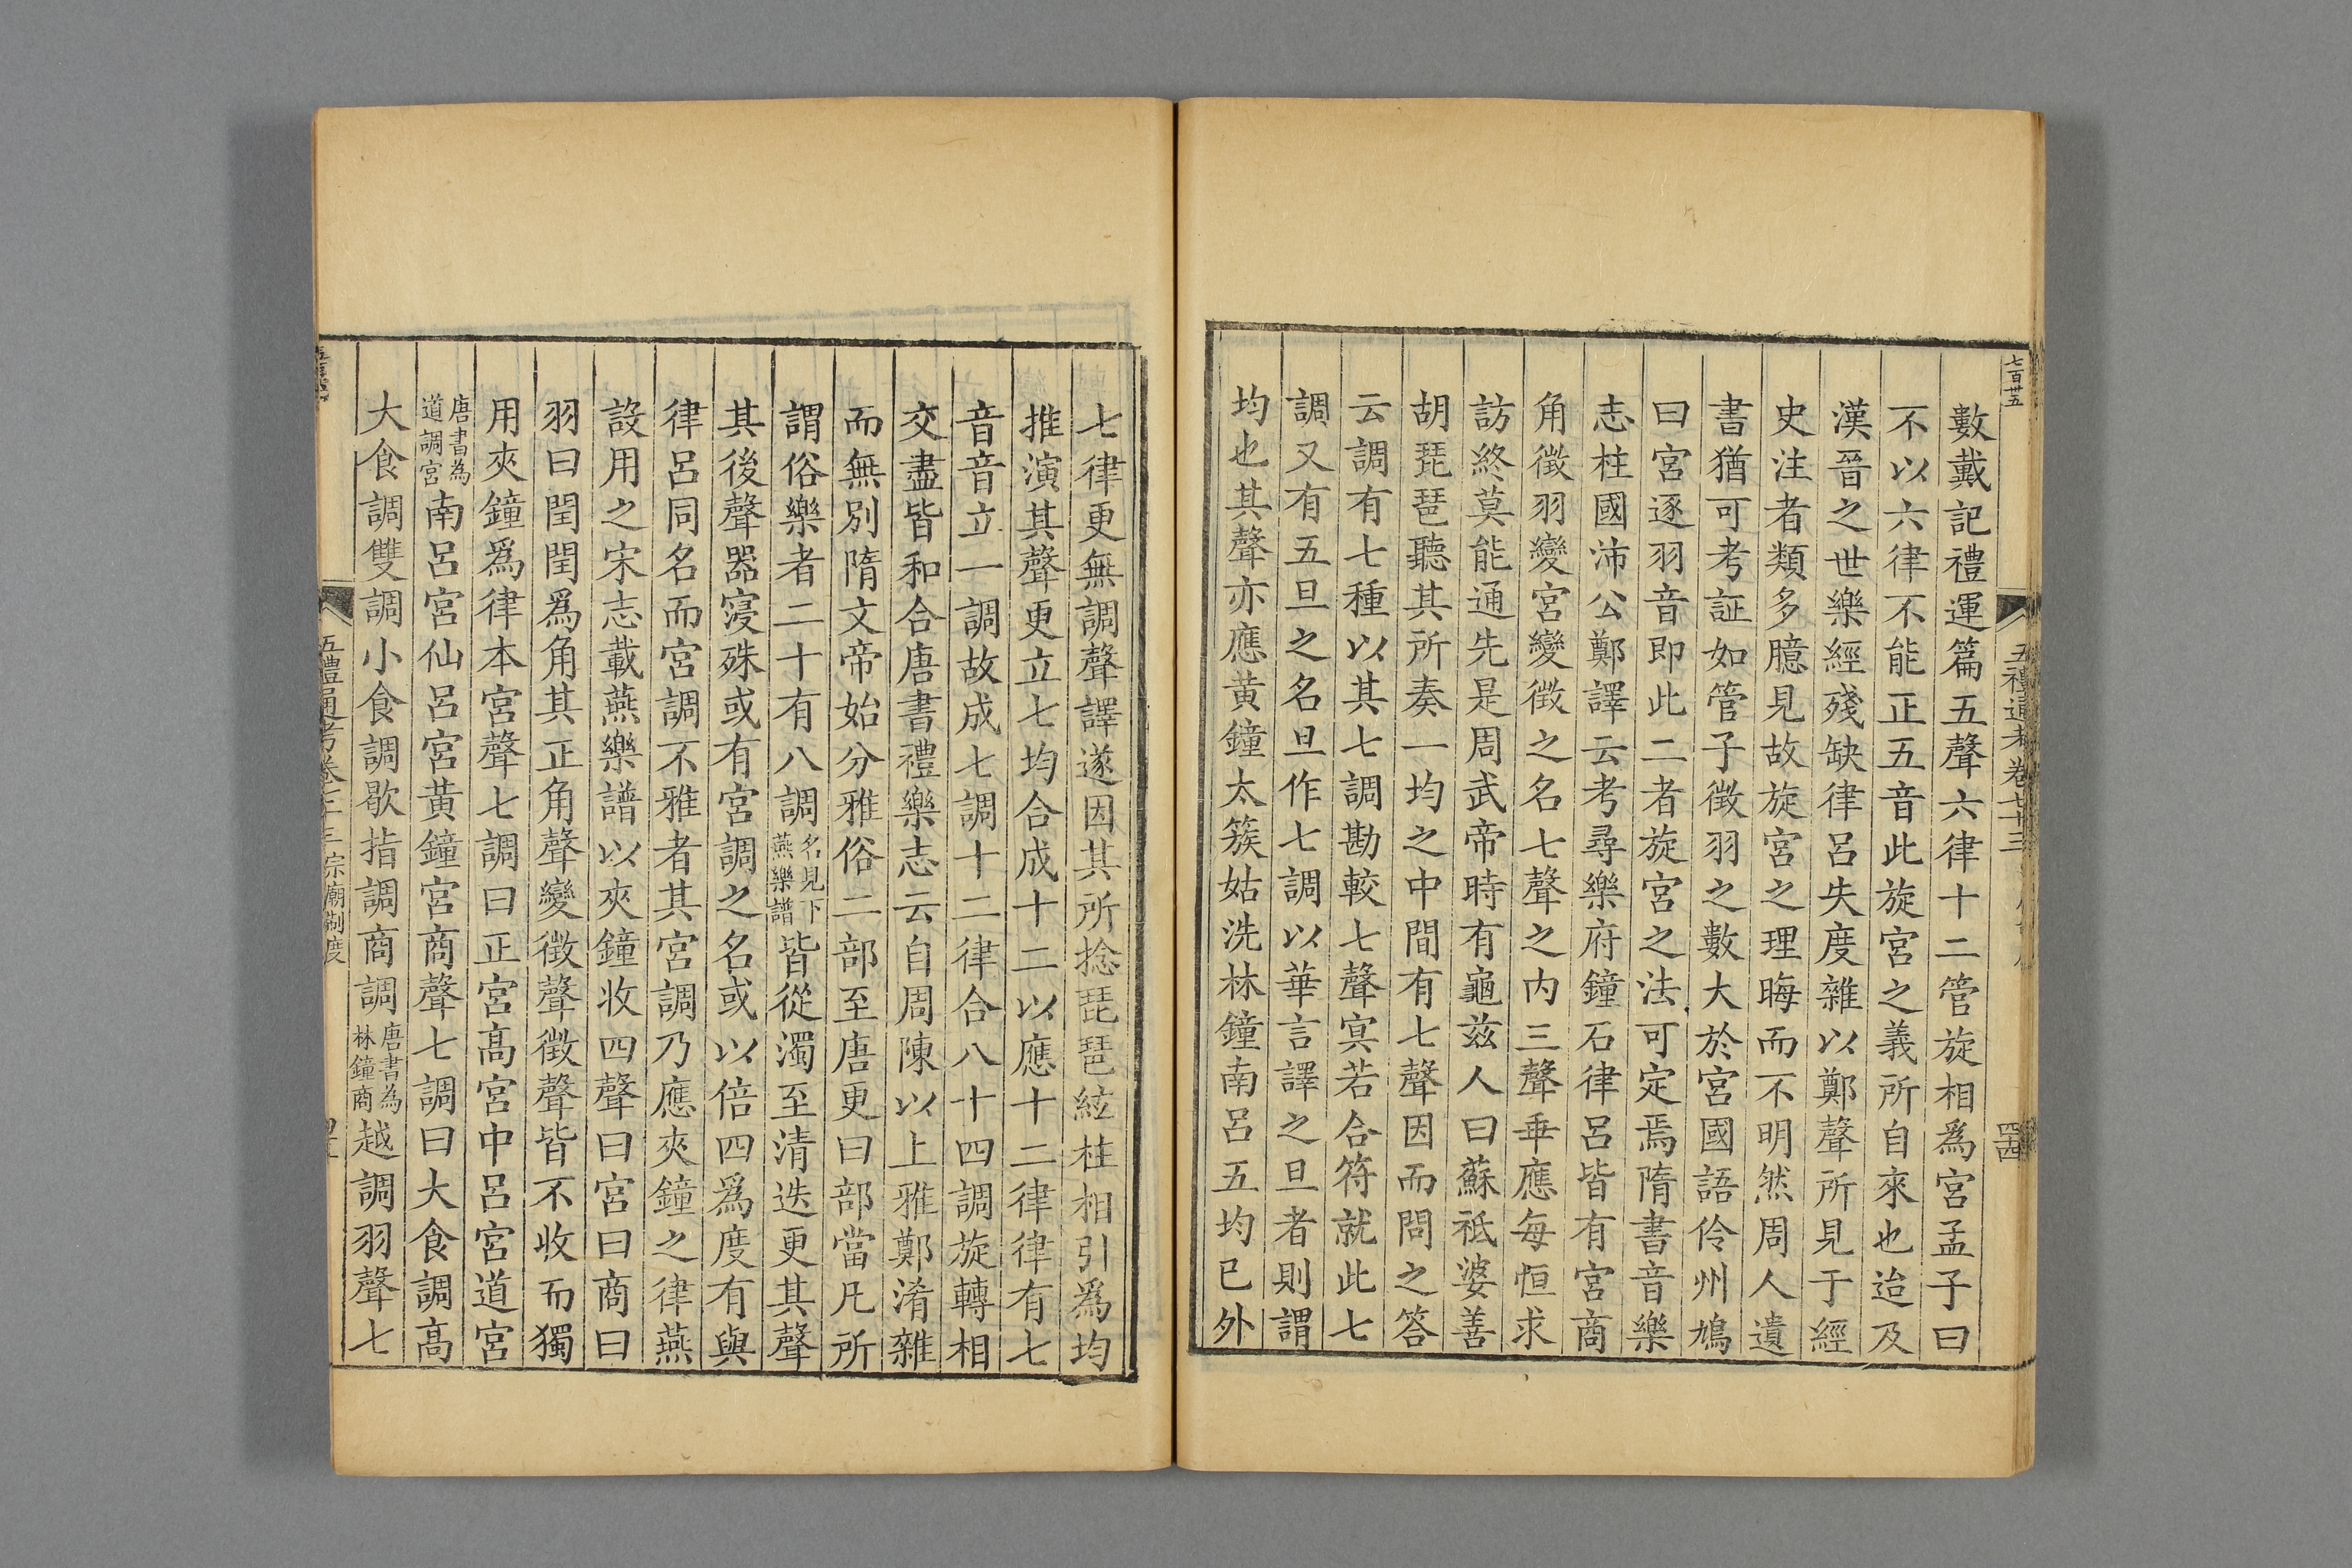 七百廿五
數戴記禮運篇五聲六律十二管旋相爲宮孟子曰
不以六律不能正五音此旋宮之義所自來也迨及
漢晉之世樂經殘缺律呂失度雜以鄭聲所見于經
史注者類多臆見故旋宮之理晦而不明然周人遺
書猶可考証如管子徵羽之數大於宮國語伶州鳩
曰宮逐羽音即此二者旋宮之法可定焉隋書音樂
志柱國沛公鄭譯云考尋樂府鐘石律呂皆有宮商
角徵羽變宮變徵之名七聲之内三聲乖應每恒求
訪終莫能通先是周武帝時有龜兹人曰蘇祇婆善
胡琵琶聽其所奏一均之中間有七聲因而問之答
云調有七種以其七調勘較七聲冥若合符就此七
調又有五旦之名旦作七調以華言譯之旦者則謂
均也其聲亦應黄鐘太簇姑洗林鐘南呂五均已外
七律更無調聲譯遂因其所捻琵琶絃柱相引爲均
推演其聲更立七均合成十二以應十二律律有七
音音立一調故成七調十二律合八十四調旋轉相
交盡皆和合唐書禮樂志云自周陳以上雅鄭淆雜
而無別隋文帝始分雅俗二部至唐更曰部當凡所
謂俗樂者二十有八調名見下燕樂譜皆從濁至清迭更其聲
其後聲器寖殊或有宮調之名或以倍四爲度有與
律呂同名而宮調不雅者其宮調乃應夾鐘之律燕
設用之宋志載燕樂譜以夾鐘收四聲曰宮曰商曰
羽曰閏閏爲角其正角聲變徵聲徵聲皆不收而獨
用夾鐘爲律本宮聲七調曰正宮高宮中呂宮道宮
唐書為道調宮南呂宮仙呂宮黄鐘宮商聲七調曰大食調高
大食調雙調小食調歇指調商調唐書為林鐘商越調羽聲七
五禮通考卷 宗廟制度